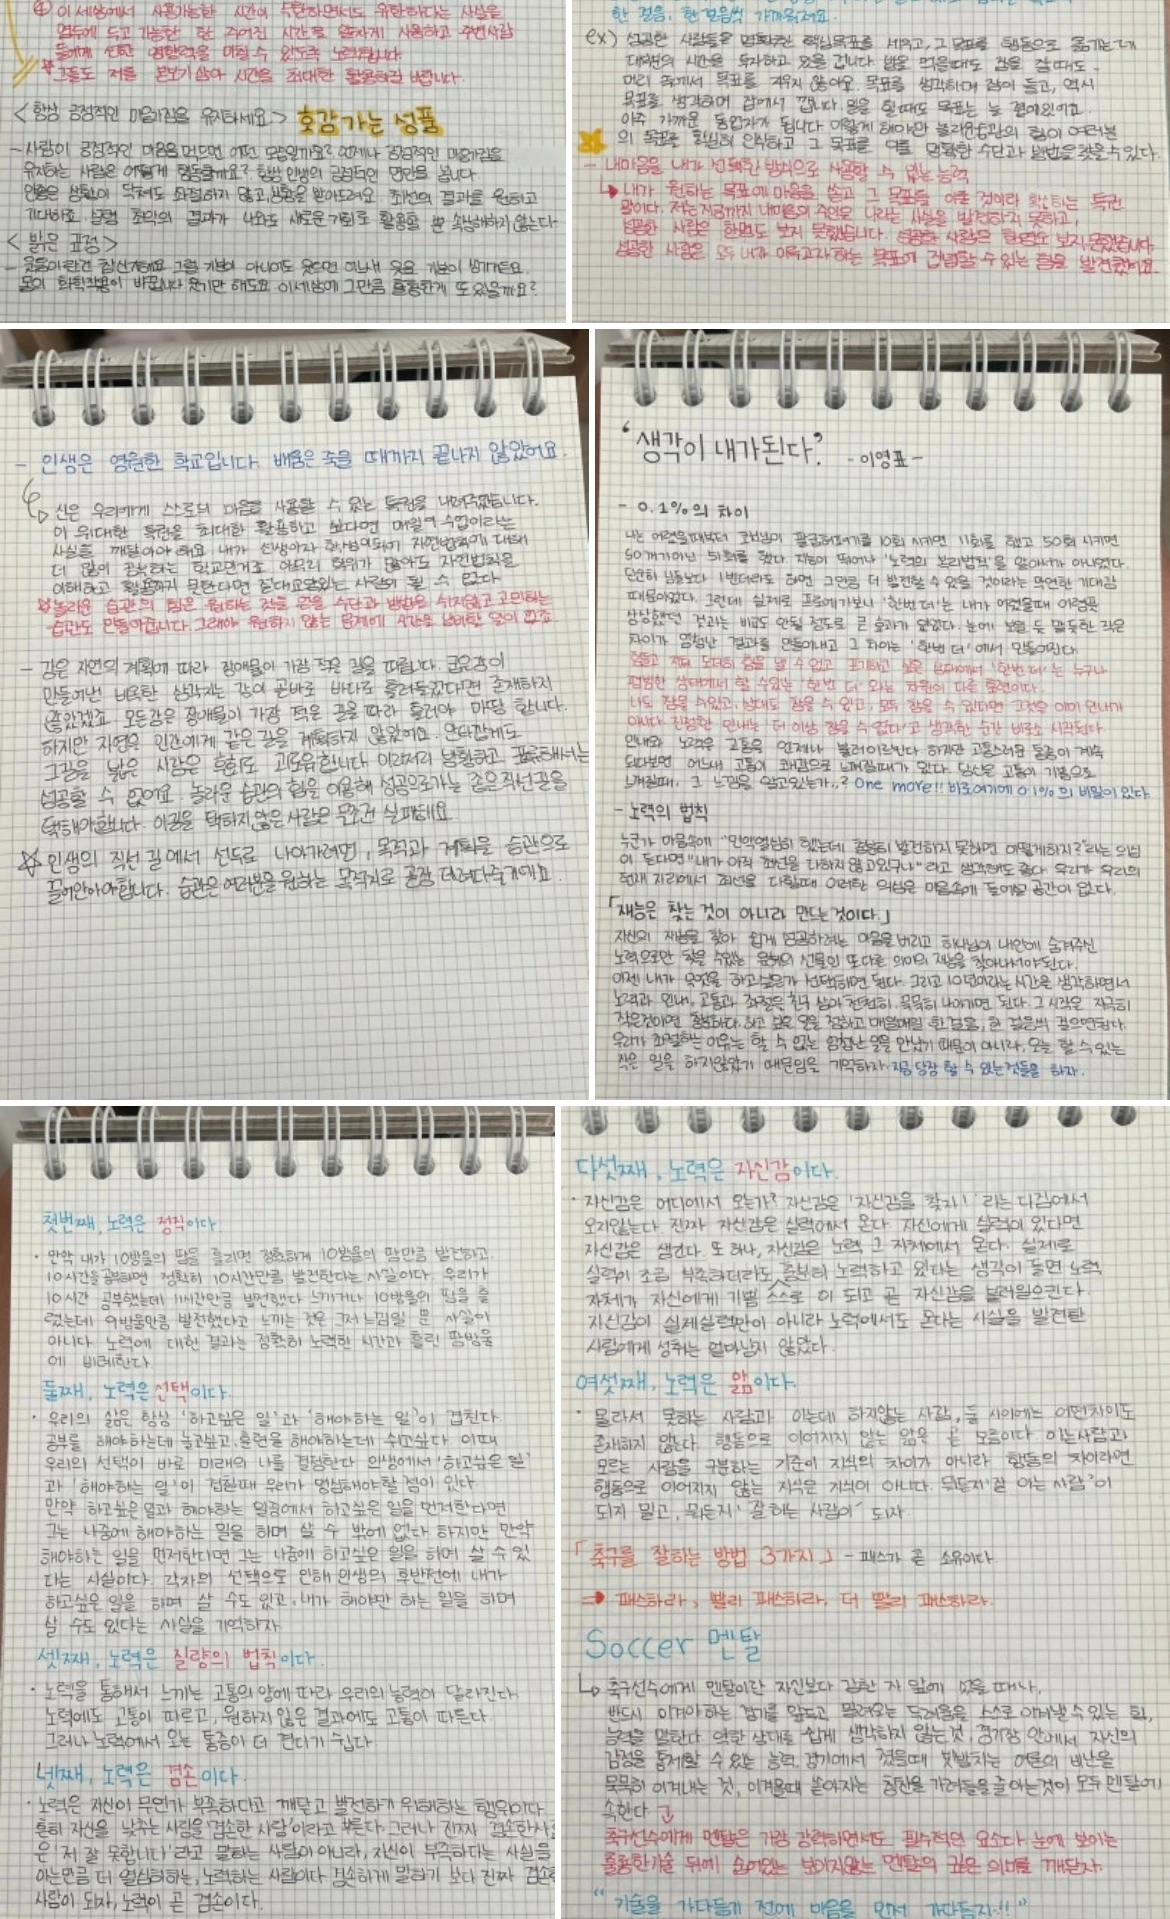 ④ 이 세상에서 사용가능한 시간이 무한하면서도 유한하다는 사실을
염두에 두고 가능한 한 주어진 시간을 알차게 사용하고 주변사람
들에게 선한 영향력을 미칠 수 있도록 노력합니다.
그들도 저를 본보기 삼아 시간을 최대한 활용하길 바랍니다.
<항상 긍정적인 마음가짐을 유지하세요.> 호감가는 성품
- 사람이 긍정적인 마음을 먹으면 어떤 모습일까요? 언제나 긍정적인 마음가짐을
유지하는 사람은 어떻게 행동할까요? 항상 인생의 긍정적인 면만을 봅니다.
안좋은 상황이 닥쳐도 좌절하지 않고, 상황을 받아들여요. 최선의 결과를 원하고
기다하죠. 설령 최악의 결과가 나와도 새로운 기회로 활용할 뿐 속상해하지 않는다
<밝은 표정>
- 웃음이란건 참신기해요 그럴 기분이 아니어도 웃으면 어느새 웃을 기분이 생기거든요.
몸의 화학작용이 바뀝니다 웃기만 해도요 이세상에 그만큼 훌륭한게 또 있을까요?
한 걸음, 한 걸음씩 가까워져요.
ex) 성공한 사람들은 명확한 핵심목표를 세우고, 그 목표를 행동으로 옮기는데
대부분의 시간을 투자하고 있을 겁니다 밥을 먹을때도 잠을 잘 때도.
머리 속에서 목표를 지우지 않아요. 목표를 생각하며 잠이 들고, 역시
목표를 생각하며 잠에서 깹니다. 일을 할 때도 목표는 늘 곁에있어요.
아주 가까운 동업자가 됩니다 이렇게 해야만 놀라운습관의 힘이 여러분
의 목표를 확실히 인식하고 그 목표를 이룰 명확한 수단과 방법을 찾을 수 있다.
- 내마음을 내가 선택한 방식으로 사용할 수 있는 능력
↳ 내가 원하는 목표에 마음을 쏟고 그 목표를 이룰 것이라 확신하는 특권
말이다. 저는 지금까지 내마음의 주인은 나라는 사실을 발견하지 못하고,
성공한 사람은 한명도 보지 못했습니다. 성공한 사람은 한명도 보지 못했습니다
성공한 사람은 모두 내가 이루고자 하는 목표에 전념할 수 있는 힘을 발견했어요.
- 인생은 영원한 학교입니다. 배움은 죽을 때까지 끝나지 않았어요.
신은 우리에게 스스로의 마음을 사용할 수 있는 특권을 내려주셨습니다.
이 위대한 특권을 최대한 활용하고 싶다면 매일이 수업이라는
사실을 깨달아야 해요 내가 선생이자 학생이되어 자연법칙에 대해
더 많이 공부하는 학교인거죠 아무리 학위가 많아도 자연법칙을
이해하고 활용하지 못한다면 절대교양있는 사람이 될 수 없다
☆ 놀라운 습관의 힘은 원하는 것을 얻을 수단과 방법을 쉬지않고 고민하는
습관도 만들어줍니다. 그래야 원하지 않는 문제에 시간을 낭비할 일이 없죠
- 강은 자연의 계획에 따라 장애물이 가장 적은 길을 따릅니다. 군유강이
만들어낸 비옥한 삼각지는 강이 곧바로 바다로 흘러들었다면 존재하지
않았겠죠. 모든강은 장애물이 가장 적은 길을 따라 흘러야 마땅 합니다.
하지만 자연은 인간에게 같은 길을 계획하지 않았어요. 안타깝게도
그길을 밟은 사람은 후회로 괴로워합니다 이리저리 방황하고 표류해서는
성공할 수 없어요. 놀라운 습관의 힘을 이용해 성공으로가는 좁은직선길을
택해야합니다. 이길을 택하지 않은 사람은 무조건 실패해요
☆ 인생의 직선 길에서 선두로 나아가려면, 목적과 계획을 습관으로
끌어안아야합니다. 습관은 여러분을 원하는 목적지로 곧장 데려다줄거예요.
'생각이 내가된다' - 이영표 -
- 0.1%의 차이
나는 어렸을때부터 코치님이 팔굽혀펴기를 10회 시키면 11회를 했고 50회 시키면
50개가아닌 51회를 했다. 지능이 뛰어나 '노력의 원리법칙'을 알아서가 아니었다.
단순히 남들보다 1번더라도 하면 그만큼 더 발전할 수 있을 것이라는 막연한 기대감
때문이었다. 그런데 실제로 프로에가보니 '한번 더'는 내가 어렸을때 어렴풋
상상했던 것과는 비교도 안될 정도로 큰 효과가 있었다. 눈에 보일 듯 말듯한 작은
차이가 엄청난 결과를 만들어내고 그 차이는 '한번 더'에서 만들어진다
힘들고 지쳐 도저히 힘을 낼 수 없고 포기하고 싶은 상태에서 '한번 더'는 누구나
평범한 상태에서 할 수있는 '한번 더'와는 차원이 다른 훈련이다.
나도 참을 수있고, 상대도 참을 수 있고, 모두 참을 수 있다면 그것은 이미 인내가
아니다 진정한 인내는 '더 이상 참을 수 없다'고 생각한 순간 비로소 시작된다
인내와 노력은 고통을 언제나 불러 일으킨다 하지만 고통스러운 훈련이 계속
되다보면 어느새 고통이 쾌감으로 느껴질때가 있다. 당신은 고통이 기쁨으로
느껴질때, 그 느낌을 알고있는가..? One more!! 바로여기에 0.1%의 비밀이 있다.
- 노력의 법칙
누군가 마음속에 "만약열심히 했는데 충분히 발전하지 못하면 어떻게하지?"라는 의심
이 든다면 "내가 아직 최선을 다하지 않고있구나" 라고 생각해도 좋다 우리가 우리의
현재 자리에서 최선을 다할때 이러한 의심은 마음속에 들어올 공간이 없다.
「재능은 찾는 것이 아니라 만드는것이다.」
자신의 재능을 찾아 쉽게 성공하려는 마음을 버리고 하나님이 내안에 숨겨주신
노력으로만 찾을 수있는 은혜의 선물인 또다른 의미의 재능을 찾아나서야된다.
이젠 내가 무엇을 하고싶은가 선택하면 된다. 그리고 10년이라는 시간을 생각하면서
노력과 인내, 고통과 좌절은 친구 삼아 천천히, 묵묵히 나아가면 된다. 그 시작은 지극히
작은것이면 충분하다. 하고 싶은 일을 정하고 매일매일 한 걸음, 한 걸음씩 걸으면된다
우리가 좌절하는 이유는 할 수 없는 엄청난 일을 만났기 때문이 아니라, 오늘 할 수 있는
작은 일을 하지않았기 때문임을 기억하자. 지금 당장 할 수 있는것들을 하자.
첫번째, 노력은 정직이다
· 만약 내가 10방울의 땀을 흘리면 정확하게 10방울의 땀만큼 발전하고.
10시간을 공부하면 정확히 10시간만큼 발전한다는 사실이다. 우리가
10시간 공부했는데 11시간만큼 발전했다 느끼거나 10방울의 땀을 흘
렸는데 9방울만큼 발전했다고 느끼는 것은 그저 느낌일 뿐 사실이
아니다. 노력에 대한 결과는 정확히 노력한 시간과 흘린 땀방울
에 비례한다
둘째, 노력은 선택이다.
· 우리의 삶은 항상 '하고싶은 일'과 '해야하는 일'이 겹친다.
공부를 해야하는데 놀고싶고, 훈련을 해야하는데 쉬고싶다. 이때
우리의 선택이 바로 미래의 나를 결정한다 인생에서 '하고싶은 일'
과 '해야하는 일'이 겹칠때 우리가 명심해야할 점이 있다
만약 하고싶은일과 해야하는 일중에서 하고싶은 일을 먼저한다면
그는 나중에 해야하는 일을 하며 살 수 밖에 없다 하지만 만약
해야하는 일을 먼저한다면 그는 나중에 하고싶은 일을 하며 살 수 있
다는 사실이다. 각자의 선택으로 인해 인생의 후반전에 내가
하고싶은 일을 하며 살 수도 있고, 내가 해야만 하는 일을 하며
살 수도 있다는 사실을 기억하자
셋째, 노력은 질량의 법칙이다.
· 노력을 통해서 느끼는 고통의 양에 따라 우리의 능력이 달라진다
노력에도 고통이 따르고, 원하지 않은 결과에도 고통이 따른다.
그러나 노력에서 오는 통증이 더 견디기 쉽다.
넷째, 노력은 겸손이다.
· 노력은 자신이 무언가 부족하다고 깨닫고 발전하기 위해하는 행위이다.
흔히 자신을 낮추는 사람을 '겸손한 사람'이라고 부른다 그러나 진짜 겸손한사
은 '저 잘 못합니다'라고 말하는 사람이 아니라, 자신이 부족하다는 사실을
아는만큼 더 열심히하는, 노력하는 사람이다 겸손하게 말하기 보다 진짜 겸손
사람이 되자, 노력이 곧 겸손이다.
다섯째, 노력은 자신감이다.
· 자신감은 어디에서 오는가? 자신감은 '자신감을 찾자!' 라는 다짐에서
오지않는다 진짜 자신감은 실력에서 온다 자신에게 실력이 있다면
자신감은 생긴다. 또 하나, 자신감은 노력 그 자체에서 온다. 실제로
실력이 조금 부족하더라도 충분히 노력하고 있다는 생각이 들면 노력
자체가 자신에게 기쁨 스스로 이 되고 곧 자신감을 불러일으킨다.
자신감이 실제실력만이 아니라 노력에서도 온다는 사실을 발견한
사람에게 성취는 얼마남지 않았다.
여섯째, 노력은 앎이다.
· 몰라서 못하는 사람과 아는데 하지않는 사람, 둘 사이에는 어떤차이도
존재하지 않는다. 행동으로 이어지지 않는 앎은 곧 모름이다 아는사람과
모르는 사람을 구분하는 기준이 지식의 차이가 아니라 행동의 차이라면
행동으로 이어지지 않는 지식은 지식이 아니다. 뭐든지 '잘 아는 사람'이
되지 말고, 뭐든지 '잘 하는 사람이' 되자.
「축구를 잘하는 방법 3가지」 - 패스가 곧 소유이다.
➔ 패스하라, 빨리 패스하라, 더 빨리 패스하라.
Soccer 멘탈
↳ 축구선수에게 멘탈이란 자신보다 강한 자 앞에 섰을 때나,
반드시 이겨야하는 경기를 앞두고 밀려오는 두려움을 스스로 이겨낼 수 있는 힘,
능력을 말한다 약한 상대를 쉽게 생각하지 않는 것, 경기장 안에서 자신의
감정을 통제할 수 있는 능력 경기에서 졌을때 빗발치는 여론의 비난을
묵묵히 이겨내는 것, 이겼을때 쏟아지는 칭찬을 가려들을 줄 아는것이 모두 멘탈에
속한다
축구선수에게 멘탈은 가장 강력하면서도 필수적인 요소다 눈에 보이는
훌륭한기술 뒤에 숨어있는 보이지않는 멘탈의 깊은 의미를 깨닫자.
"기술을 가다듬기 전에 마음을 먼저 가다듬자!!"